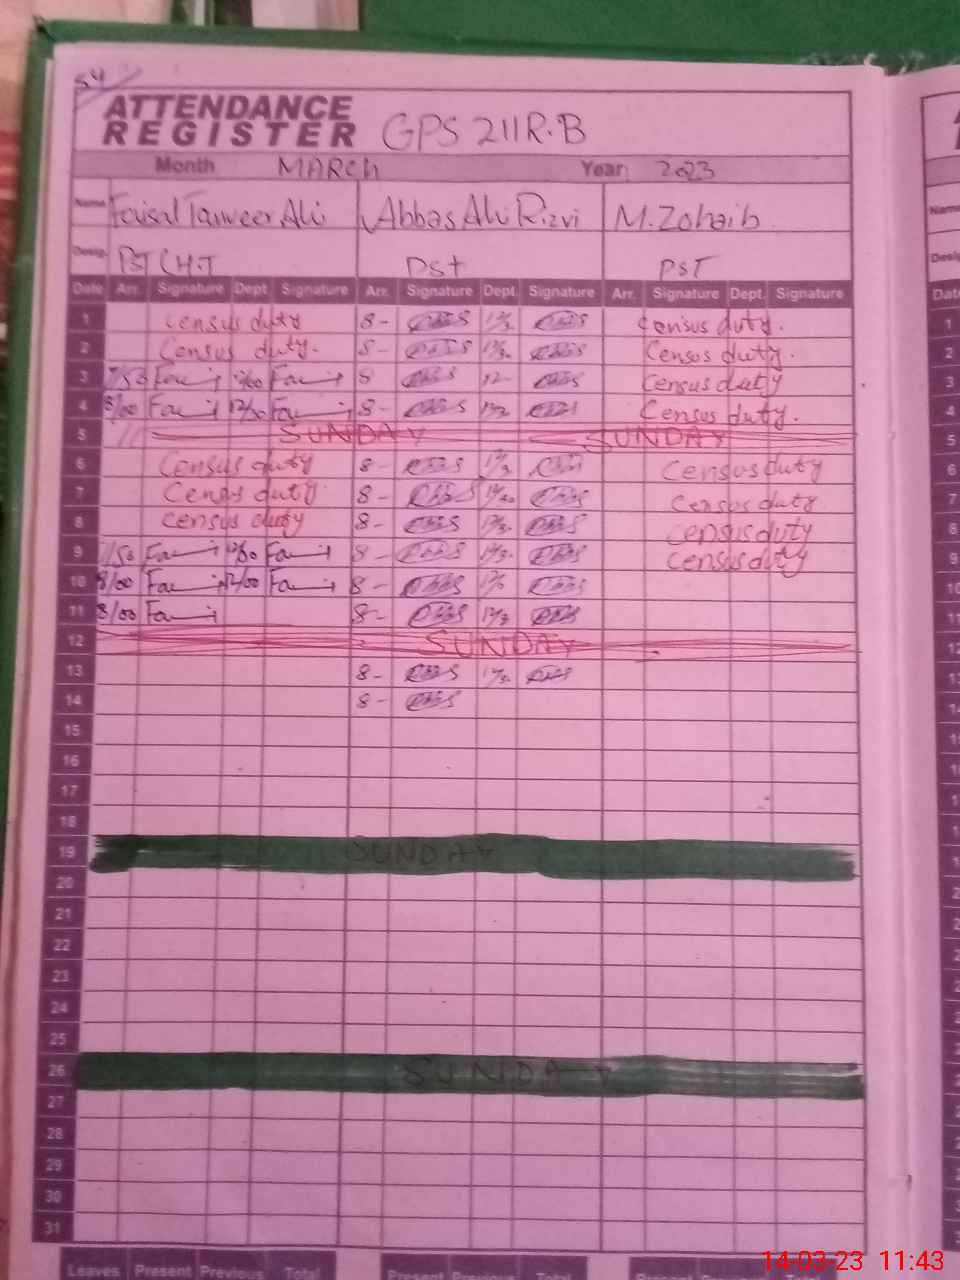 54
ATTENDANCE
REGISTER GPS 211R.B
Month MARCH Year 2023
Name Faisal Tanveer Ali Abbas Ali Rizvi M.Zohaib
Desig. PST PST
Date Arr. Signature Dept. Signature Arr. Signature Dept. Signature Arr. Signature Dept. Signature
1 census duty 8- Census duty. 1
2 Census duty. 8- Census duty. 2
3 7/50 12/00 8 12- Census duty 3
4 8/00 12/00 8- Census duty. 4
5 SUNDAY SUNDAY 5
6 Census duty 8- Census duty 6
7 Census duty. 8- Census duty. 7
8 census duty 8- census duty 8
9 7/50 12/00 8- census duty 9
10 8/00 12/00 8- 10
11 8/00 8- 11
12 SUNDAY 12
13 8-
14 8-
15
16
17
18
19 SUNDAY
20
21
22
23
24
25
26 SUNDAY
27
28
29
30
31
Leaves Present Previous Total Present Total Present
14-03-23 11:43